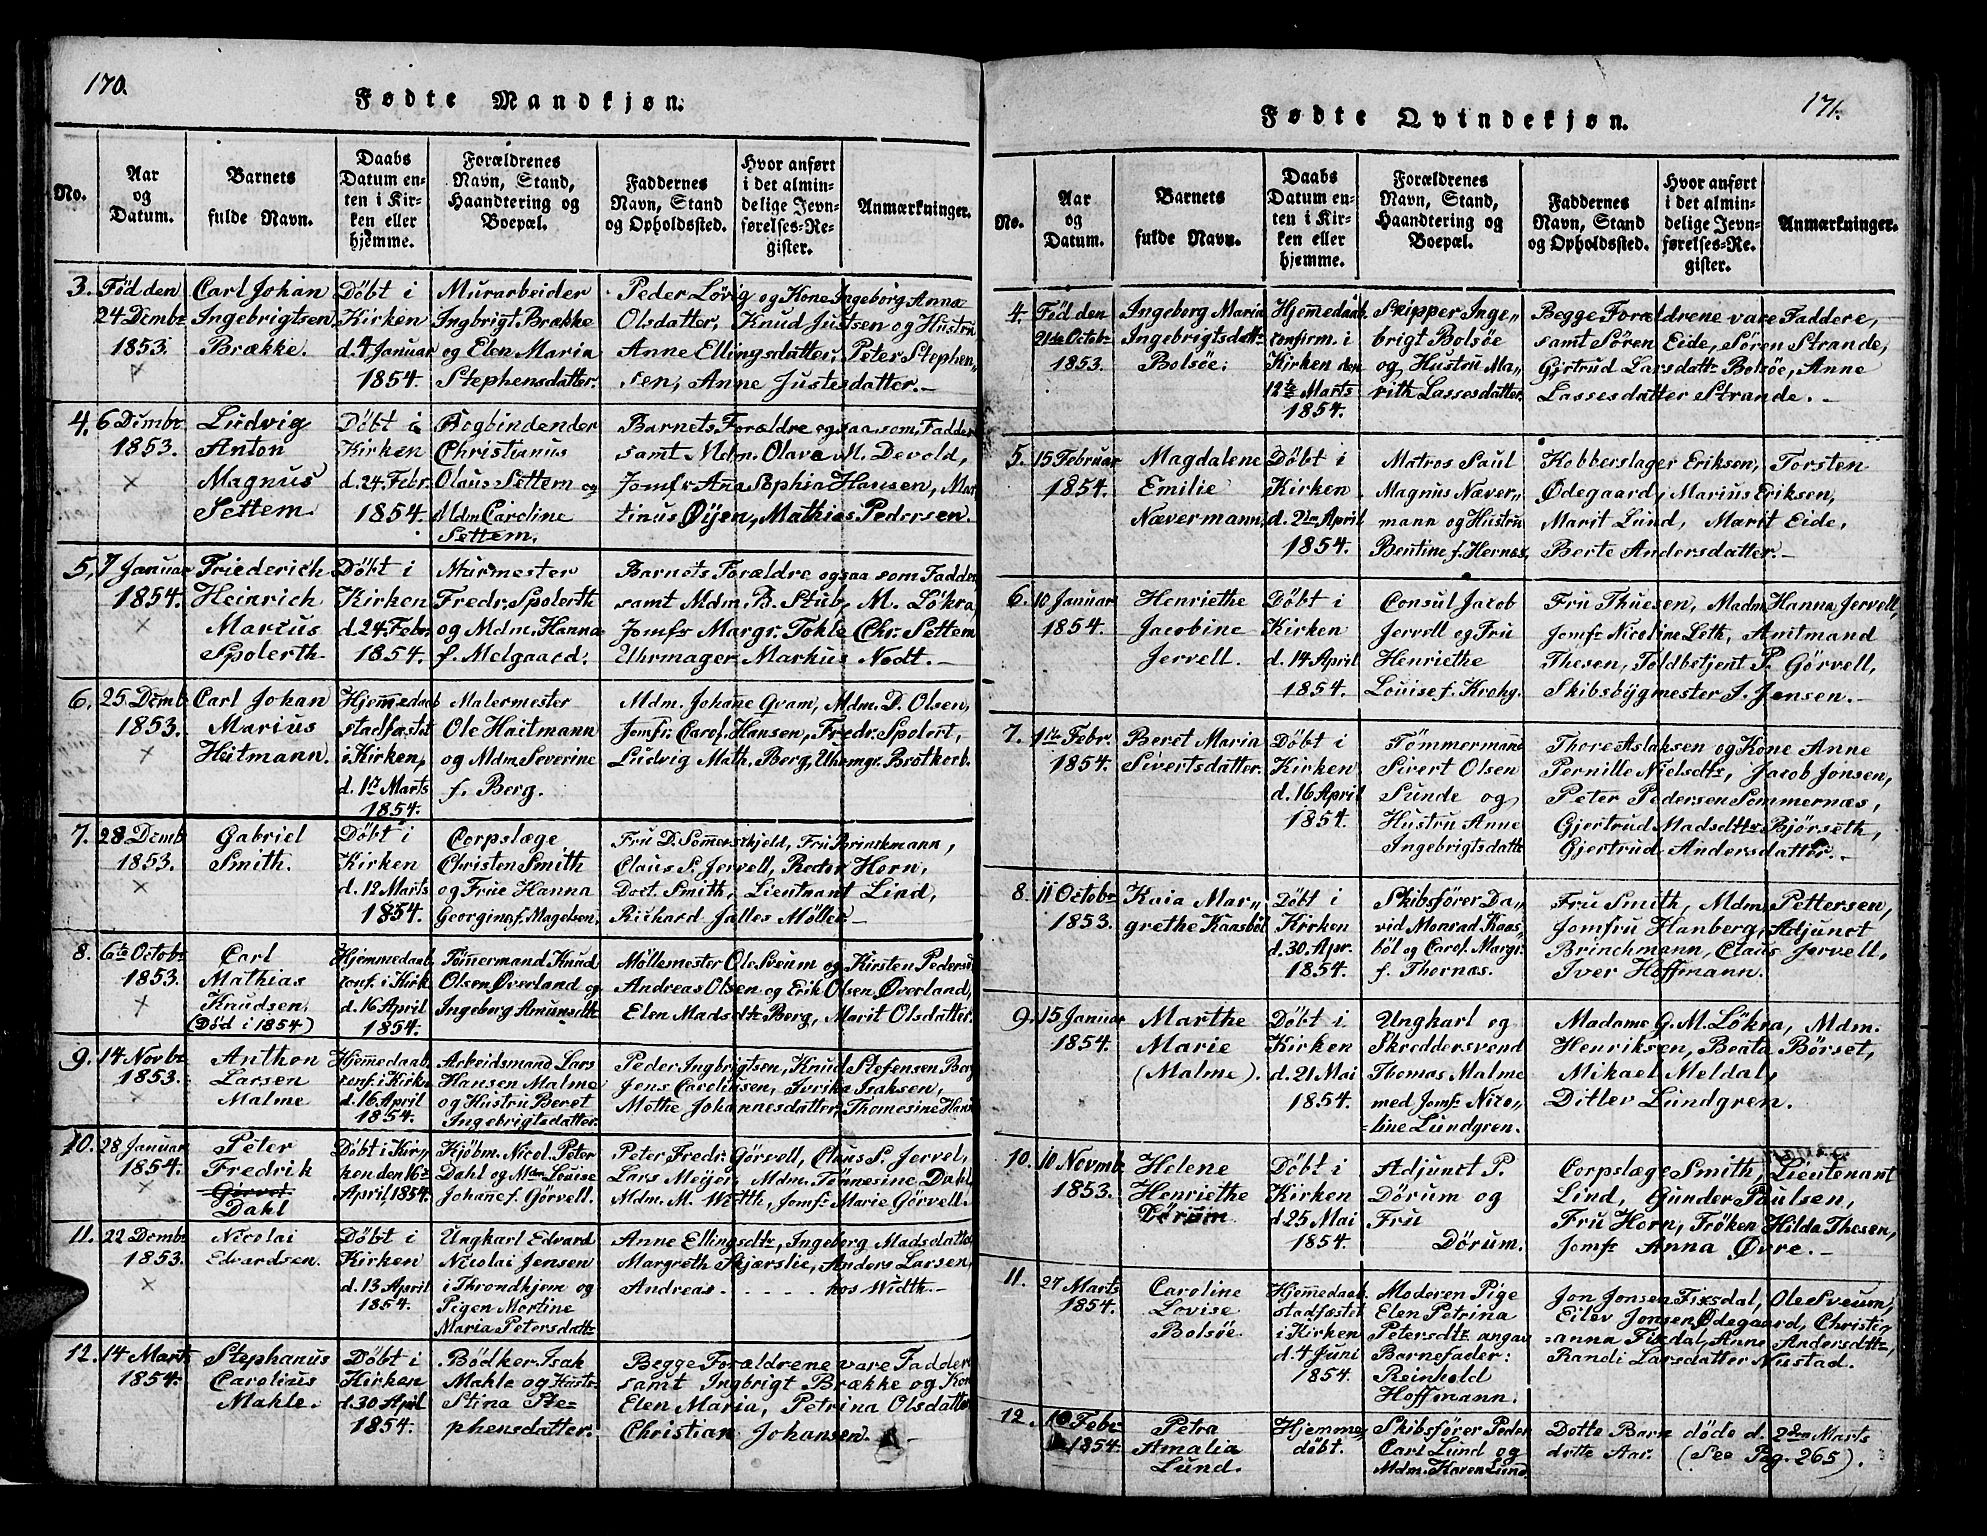 170.
Fødte Mandkjøn.
No.
Aar og Datum.
Barnets fulde Navn.
Daabs Datum enten i Kirken eller hjemme.
Forældrenes Navn, Stand, Haandtering og Boepæl.
Faddernes Navn, Stand og Opholdssted.
Hvor anført i det almindelige Jevnførelses-Register.
Anmærkninger.
3.
Fød den
24 Dembr
1853.
Carl Johan
Ingebrigtsen
Brække.
Döbt i
Kirken
d. 4 Januar
1854.
Murarbeider
Ingbrigt Brække
og Elen Maria
Stephensdatter.
Peder Lövig og Kone Ingeborg Anna
Olsdatter, Knud Justsen og Hustru
Anne Ellingsdatter, Peter Stephen„
sen, Anne Justesdatter.–
4.
6 Dembr
1853.
Ludvig
Anton
Magnus
Settem
Döbt i
Kirken
d. 24 Febr.
1854.
Bogbindender
Christianus
Olaus Settem og
Mdm Caroline
Settem.
Barnets Forældre ogsaa som Fadder
samt Mdm. Olave M. Devold,
Jomfr Anna Sophia Hansen, Mar
tinus Öijen, Mathias Pedersen.
5.
7 Januar
1854.
Friederich
Heinrich
Marius
Spolerth
Döbt i
Kirken
d. 24 Febr.
1854.
Murmester
Fredr. Spolerth
og Mdm. Hanna
f. Melgaard.
Barnets Forældre ogsaa som Fadder
samt Mdm. B. Stub, M. Lökra,
Jomfr Margr. Tokle, Chr. Settem
Uhrmager Markus Nodt.–
6.
25 Demb
1853.
Carl Johan
Marius
Heitmann.
Hjemmedaab
stadfæstet
i Kirken,
d. 1ste Marts
1854.
Malermester
Ole Haitmann
og Mdm Severine
f. Berg.
Mdm. Johane Qvam, Mdm. D. Olsen,
Jomfr. Carol. Hansen, Fredr. Spolert,
Ludvig Math. Berg, Uhrmgr. Brotkorb.
7.
28 Demb
1853.
Gabriel
Smith.
Döbt i
Kirken
d. 12 Marts
1854.
Corpslæge
Christen Smith
og Frue Hanna
Georgina f. Magelsen.
Fru D. Sommerschjeld, Fru Brinckmann,
Claus S. Jervell, Rector Horn,
Doct. Smith, Lieutnant Lind,
Richard Jalles Møller–
8.
6te Octobr
1853.
Carl
Mathias
Knudsen
(Död i 1854)
Hjemmedaab
conf. i Kirk
d. 16 April
1854.
Tömermand Knud
Olsen Överland og
Ingeborg Amunsdtr
Møllemester Ole Sveum og Kirsten Pedersd
Andreas Olsen og Erik Olsen Överland,
Elen Madsdtr Berg, Marit Olsdatter.
9.
14 Novbr
1853.
Anthon
Larsen
Malme
Hjemmedaab
conf. i Kirke
d. 16 April
1854.
Arbeidsmand Lars
Hansen Malme
og Hustru Beret
Ingebrigtsdatter.
Peder Ingbrigtsen, Knud Stefensen Berg
Jens Carolinsen, Iverska Isaksen,
Methe Johannesdatter, Thomesine Hans
10.
28 Januar
1854.
Peter
Fredrik
Gørvel
Dahl
Döbt i Kir„
ken den 16de
April 1854.
Kjöbm. Nicol. Peter
Dahl og Mdm Louise
Johane f. Görvell.
Peter Fredr. Görvell, Claus S. Jervel,
Lars Meyer, Mdm. Tönnesine Dahl
Mdm. M. Weth, Jomfr. Marie Görvell.
11.
22 Dembr
1853.
Nicolai
Edvardsen.
Döbt i
Kirken
d. 13 April
1854.
Ungkarl Edvard
Nicolai Jensen
i Throndhjem og
Pigen Martine
Maria Petersdattr
Anne Ellingsdtr, Ingeborg Madsdatter
Margreth Skjærslie, Anders Larsen,
Andreas . . . . . hos Width.–
12.
14 Marts
1854.
Stephanus
Carolius
Mahle.
Döbt i
Kirken
d. 30 April
1854.
Bödker Isak
Mahle og Hustr.
Stina Ste–
phensdatter.
Begge Forældrene vare Fadder
samt Ingbrigt Brække og Kon
Elen Maria, Petrina Olsdatter
Christian Johansen.
171.
Fødte Qvindekjøn.
No.
Aar og Datum.
Barnets fulde Navn.
Daabs Datum enten i Kirken eller hjemme.
Forældrenes Navn, Stand, Haandtering og Boepæl.
Faddernes Navn, Stand og Opholdssted.
Hvor anført i det almindelige Jevnførelses-Register.
Anmærkninger.
4.
Föd den
21de Octobr
1853.
Ingeborg Maria
Ingebrigtsdattr
Bolsöe.
Hjemmedaab
confirm. i
Kirken den
12te Marts
1854.
Skipper Inge„
brigt Bolsöe
og Hustru Ma„
rith Lassesdatter.
Begge Forældrene vare Faddere,
samt Sören Eide, Sören Strande,
Gjertrud Larsdattr Bolsöe, Anne
Lassesdatter Strande.–
5.
15 Februar
1854.
Magdalene
Emilie
Nævermann,
Döbt i
Kirken
d. 2den April
1854.
Matros Paul
Magnus Næver„
mann og Hustru
Bentine f. Hernæs
Kobberslager Eriksen, Torsten
Ödegaard, Marius Eriksen,
Marit Lund, Marit Eide,
Berte Andersdatter.–
6.
10 Januar
1854.
Henriethe
Jacobine
Jervell.
Döbt i
Kirken
d. 14 April
1854.
Consul Jacob
Jervell og Fru
Henriethe
Louise f. Krohg.
Fru Thuesen, Madm Hanna Jervell,
Jomfr Nicoline Leth, Amtmand
Thesen, Toldbetjent P. Görvell,
Skibsbygmester J. Jensen.–
7.
1ste Febr.
1854.
Beret Maria
Sivertsdatter.
Döbt i
Kirken
d. 16 April
1854.
Tömmermand
Sivert Olsen
Sunde og
Hustru Anne
Ingebrigtsdattr
Thore Aslaksen og Kone Anne
Pernille Nielsdtr, Jacob Jonsen,
Peter Pedersen Sommernæs,
Gjertrud Madsdtr Bjørseth,
Gjertrud Andersdatter.–
8.
11 Octobr
1853.
Kaia Mar„
grethe Kaasböl
Döbt i
Kirken
d. 30. Apr.
1854.
Skibsförer Da„
vid Monrad Kaas„
böl og Carol. Margr.
f. Thornæs.
Fru Smith, Mdm Pettersen,
Jomfru Hanberg, Adjunct
Brinchmann, Claus Jervell,
Iver Hoffmann.
9.
15 Januar
1854.
Marthe
Marie
(Malme).
Döbt i
Kirken
d. 21 Mai
1854.
Ungkarl og
Skreddersvend
Thomas Malme
med Jomfr Nico„
line Lundgren.
Madame G. M. Lökra, Mdm.
Henriksen, Beata Börset,
Mikael Meldal,
Ditlev Lundgren.
10.
10 Novmb
1853.
Helene
Henriethe
Dörum
Döbt i
Kirken
d 25 Mai
1854.
Adjunct P.
Dörum og
Fru
Dörum.
Corpslæge Smith, Lieutenant
Lind, Gunder Paulsen,
Fru Horn, Fröken Hilda Thesen,
Jomfr Anna Övre.–
11.
27 Marts
1854.
Caroline
Lovise
Bolsöe.
Hjemmedaab
stadfæstet
i Kirken
d. 4 Juni
1854.
Moderen Pige
Elen Petrina
Petersdtr angav
Barnefader:
Reinhold
Hoffmann.
Jon Jonsen Fixdal, Ole Sveum,
Eilev Jonsen Ödegaard, Christi„
anna Fixdal, Anne Andersdttr,
Randi Larsdatter Nustad.
12.
10 Febr
1854.
Petra
Amalia
Lund.
Hjemme
döbt.
Skibsförer Peder
Carl Lund og
Mdm. Karen Lund
Dette Barn döde d. 2den Marts
dette Aar. (See Pag. 265).